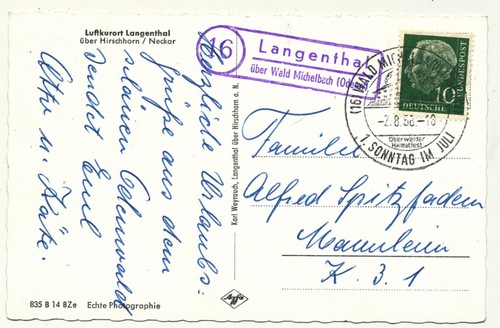 Luftkurort Langenthal
über Hirschhorn / Neckar
Herzliche Urlaubs-
grüße aus dem
schönen Odenwald
sendet Emil
Otto u. Käte.
835 B 14 BZe Echte Photographie
Karl Weyrauch, Langenthal über Hirschhorn a. N.
Agfa
16
Langenthal
über Wald Michelbach (Odenw)
DEUTSCHE BUNDESPOST
10
(16) WALD MICHELBACH
-2.8.58.-18
Oberwälder
Heimatfest
1. SONNTAG IM JULI
Familie
Alfred Spitzfadem
Mannheim
K. 3. 1